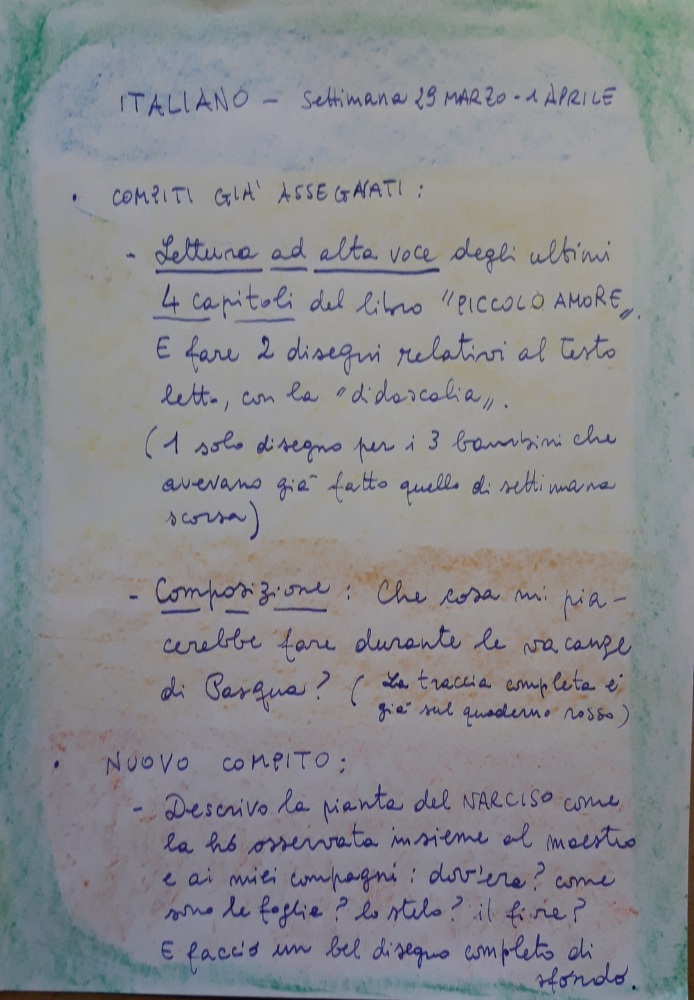 ITALIANO - Settimana 29 MARZO - 1 APRILE
• COMPITI GIA' ASSEGNATI :
- Lettura ad alta voce degli ultimi
4 capitoli del libro "PICCOLO AMORE„.
E fare 2 disegni relativi al testo
letto, con la "didascalia„.
(1 solo disegno per i 3 bambini che
avevano già fatto quello di settimana
scorsa)
- Composizione : Che cosa mi pia-
cerebbe fare durante le vacanze
di Pasqua? ( La traccia completa e'
già sul quaderno rosso)
• NUOVO COMPITO :
- Descrivo la pianta del NARCISO come
la hò osservata insieme al maestro
e ai miei compagni : dov'era? come
sono le foglie? lo stelo? il fiore?
E faccio un bel disegno completo di
sfondo.